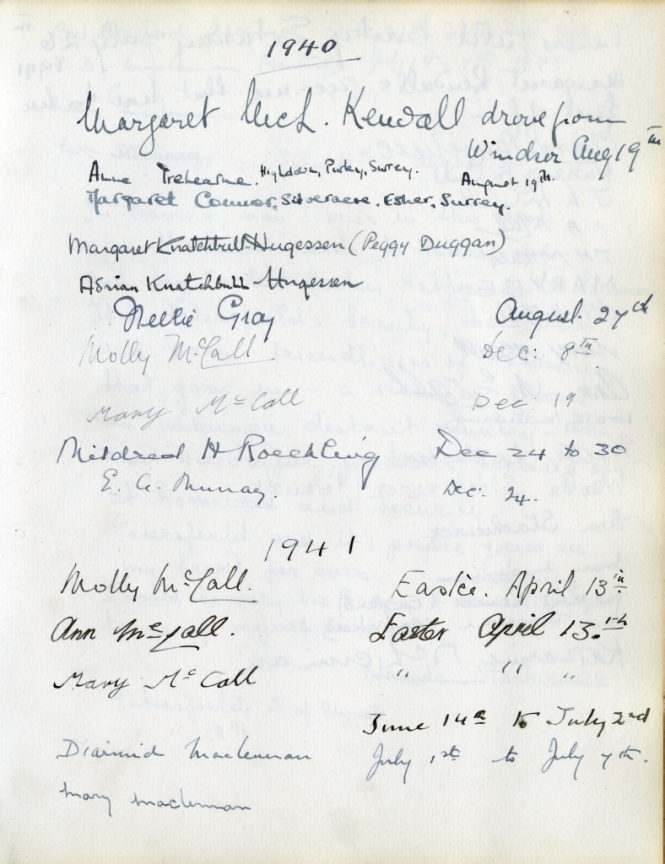 1940
Margaret McL. Kendall drove from
Windsor Aug 19th
Anne Trehearne. Highdown, Purley, Surrey. August 19th.
Margaret Connor, Silveracre. Esher, Surrey.
Margaret Knatchbull-Hugessen (Peggy Duggan)
Adrian Knatchbull-Hugessen
Nellie Gray August 27th
Molly McCall Dec: 8TH
Mary McCall Dec 19
Mildred H Roechling Dec 24 to 30
E. C. Murray. Dec. 24.
1941
Molly McCall. Easter. April 13th
Ann McCall. Easter April 13.th
Mary McCall " " "
June 14th to July 2nd
Diarmid Maclennan July 1st to July 7th.
Mary Maclennan